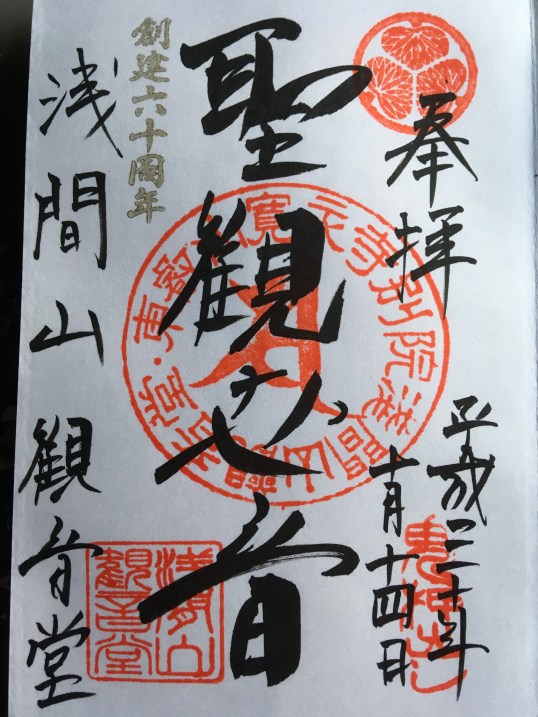 奉拝
平成三十年
十月十四日
鬼押出し
聖観世音
東叡山寛永寺別院浅間山観音堂
創建六十周年
浅間山観音堂
浅間山
観音堂